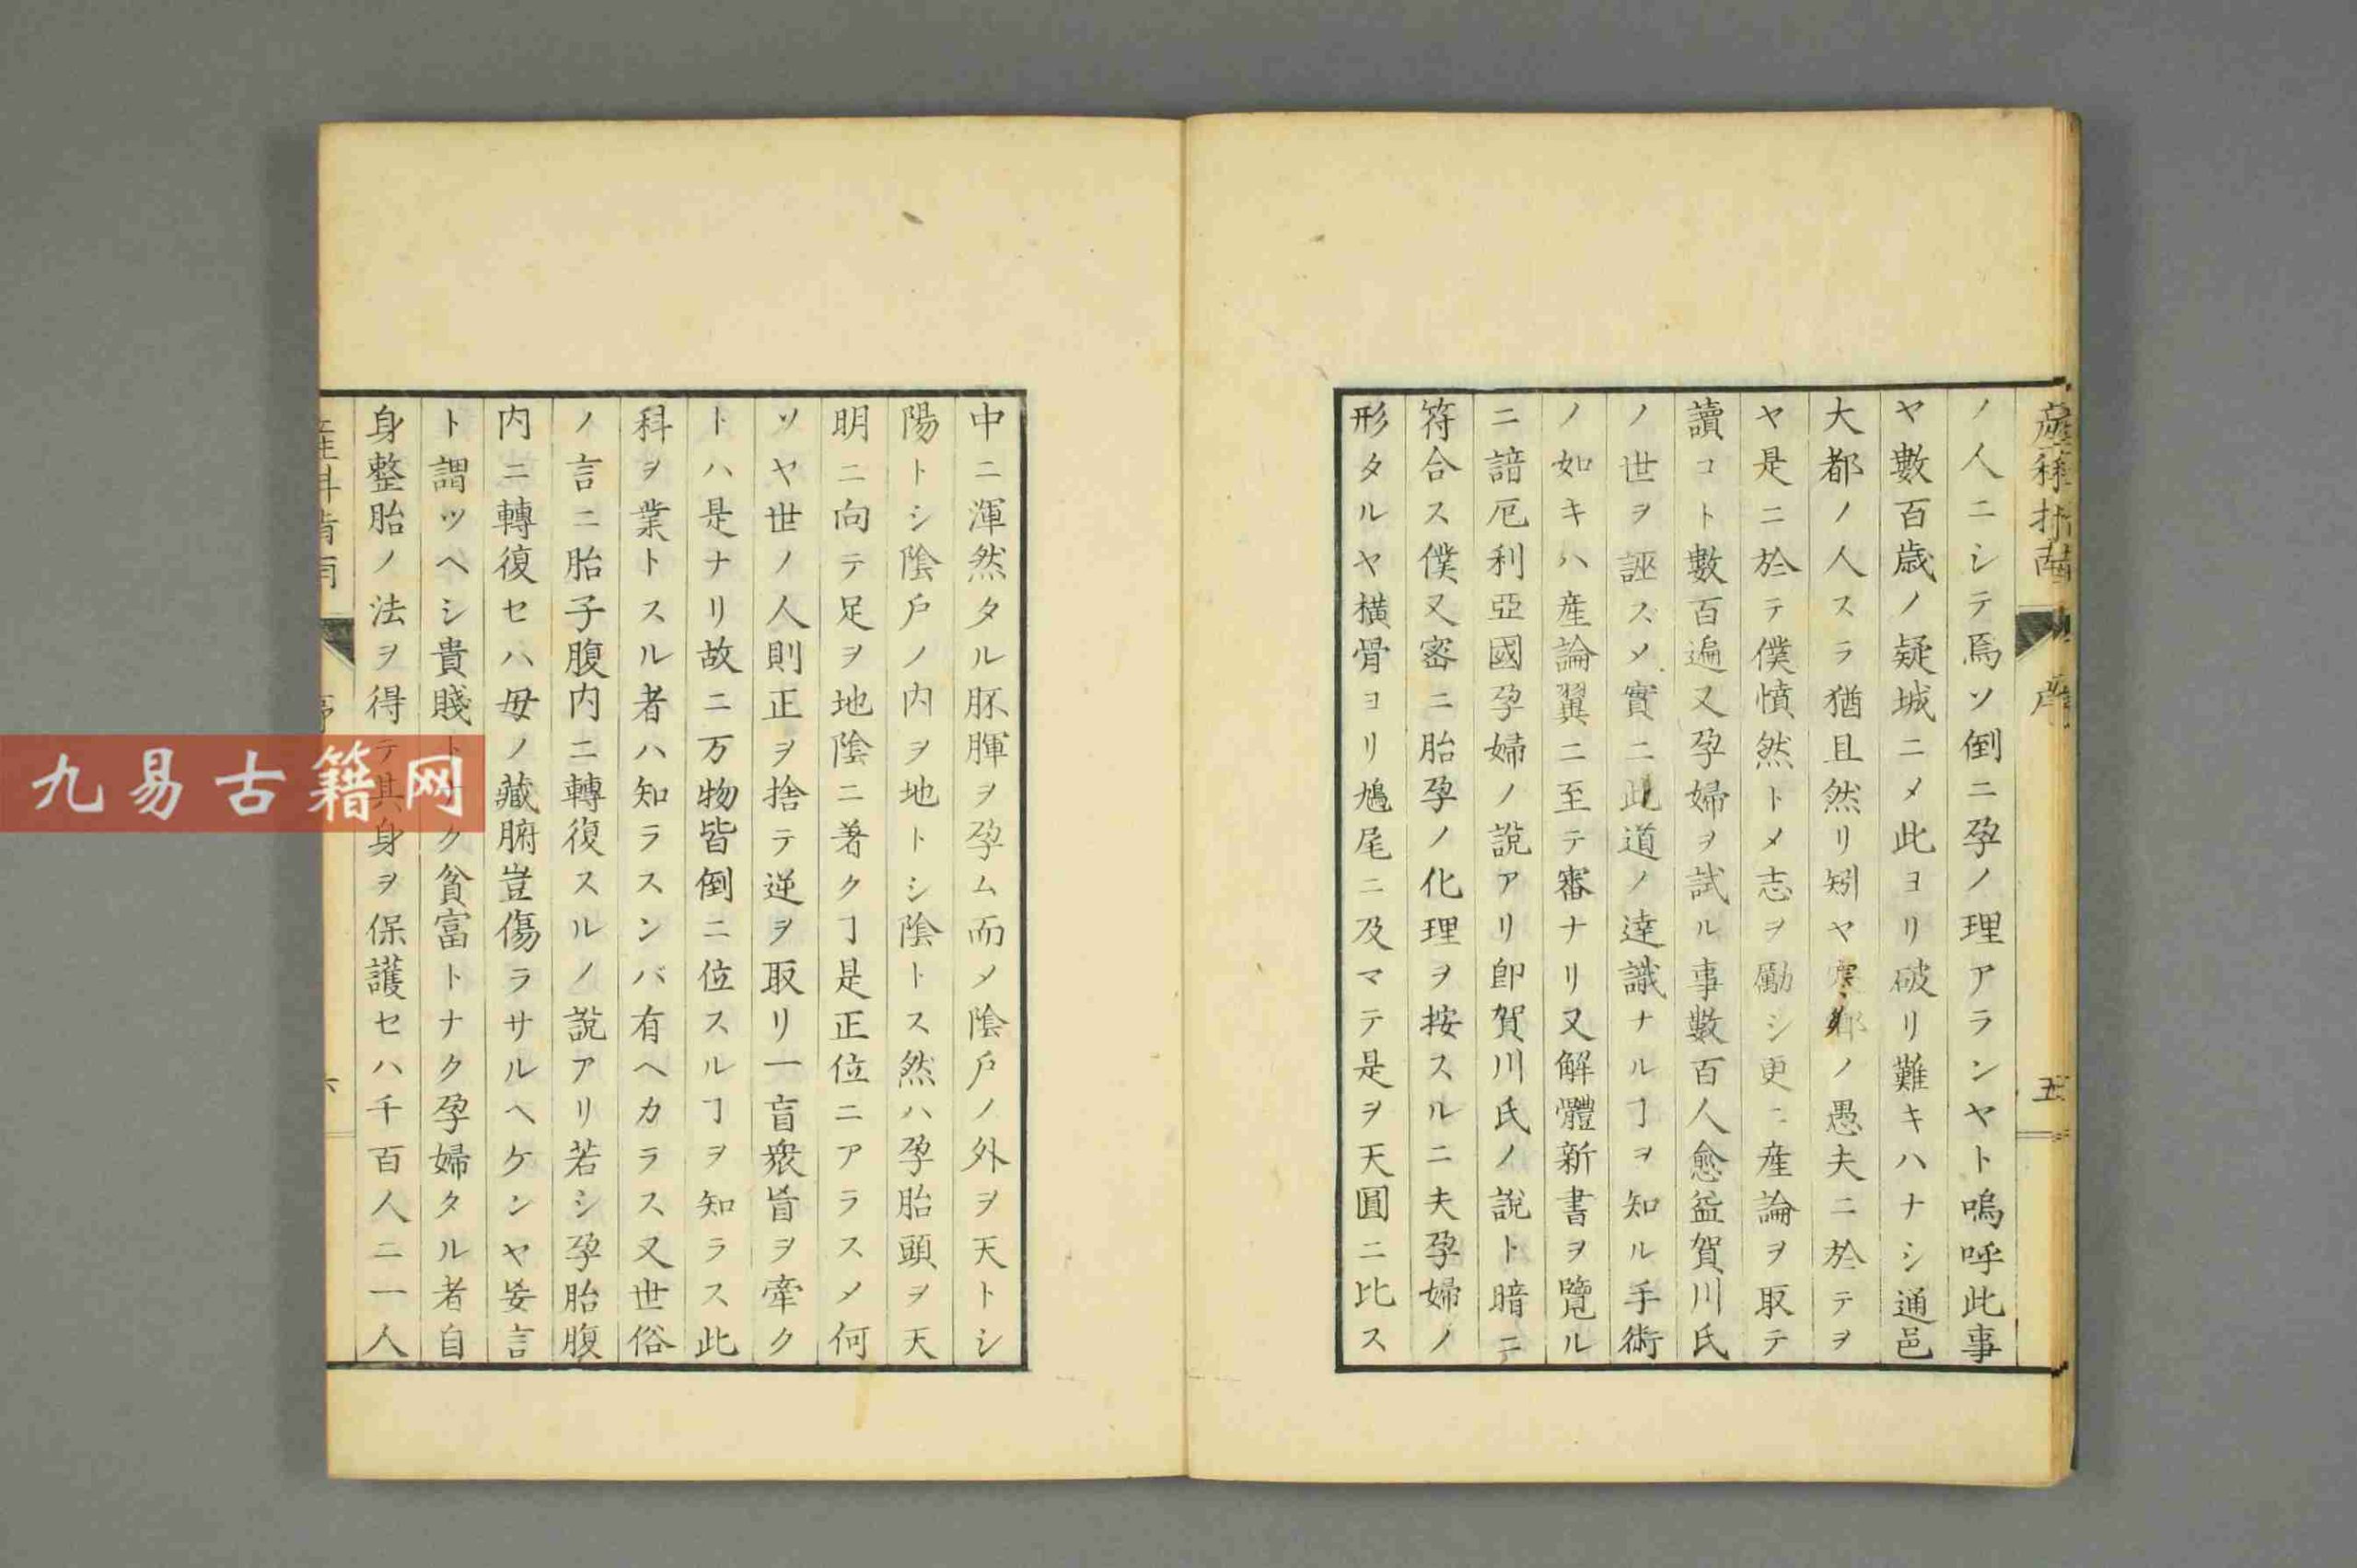 ノ人ニシテ焉ソ倒ニ孕ノ理アランヤト嗚呼此事
ヤ數百歳ノ疑城ニメ此ヨリ破リ難キハナシ通邑
大都ノ人スラ猶且然リ矧ヤ寒郷ノ愚夫ニ於テヲ
ヤ是ニ於テ僕憤然トメ志ヲ勵シ更ニ産論ヲ取テ
讀コト數百遍又孕婦ヲ試ル事數百人愈益賀川氏
ノ世ヲ誣スメ實ニ此道ノ達識ナルヿヲ知ル手術
ノ如キハ産論翼ニ至テ審ナリ又解體新書ヲ覽ル
ニ諳厄利亞國孕婦ノ說アリ卽賀川氏ノ說ト暗ニ
符合ス僕又密ニ胎孕ノ化理ヲ按スルニ夫孕婦ノ
形タルヤ横骨ヨリ鳩尾ニ及マテ是ヲ天圓ニ比ス
産科指南 序 五
中ニ渾然タル胚腪ヲ孕ム而メ陰戶ノ外ヲ天トシ
陽トシ陰戶ノ内ヲ地トシ陰トス然ハ孕胎頭ヲ天
明ニ向テ足ヲ地陰ニ著クヿ是正位ニアラスメ何
ソヤ世ノ人則正ヲ捨テ逆ヲ取リ一盲衆盲ヲ牽ク
トハ是ナリ故ニ万物皆倒ニ位スルヿヲ知ラス此
科ヲ業トスル者ハ知ラスンバ有ヘカラス又世俗
ノ言ニ胎子腹内ニ轉復スルノ說アリ若シ孕胎腹
内ニ轉復セハ母ノ藏腑豈傷ラサルヘケンヤ妄言
ト謂ツヘシ貴賤トナク貧富トナク孕婦タル者自
身整胎ノ法ヲ得テ其身ヲ保護セハ千百人ニ一人
産科指南 序 六
九易古籍网